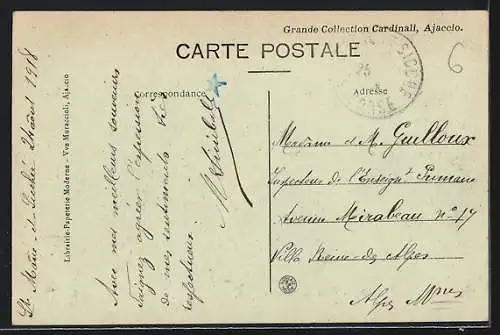 Grande Collection Cardinali, Ajaccio.
CARTE POSTALE
Correspondance
Adresse
Librairie-Papeterie Moderne - Vve Muracciuli, Ajaccio
Ste Marie-et-Siché 24 août 1918
Avec mes meilleurs souvenirs
daignez agréer l'expression
de mes sentiments
respectueux
Madame et M. Guilloux
Inspecteur de l'Enseignt Primaire
Avenue Mirabeau n° 17
Villa Reine-des Alpes
Alpes Mmes
6